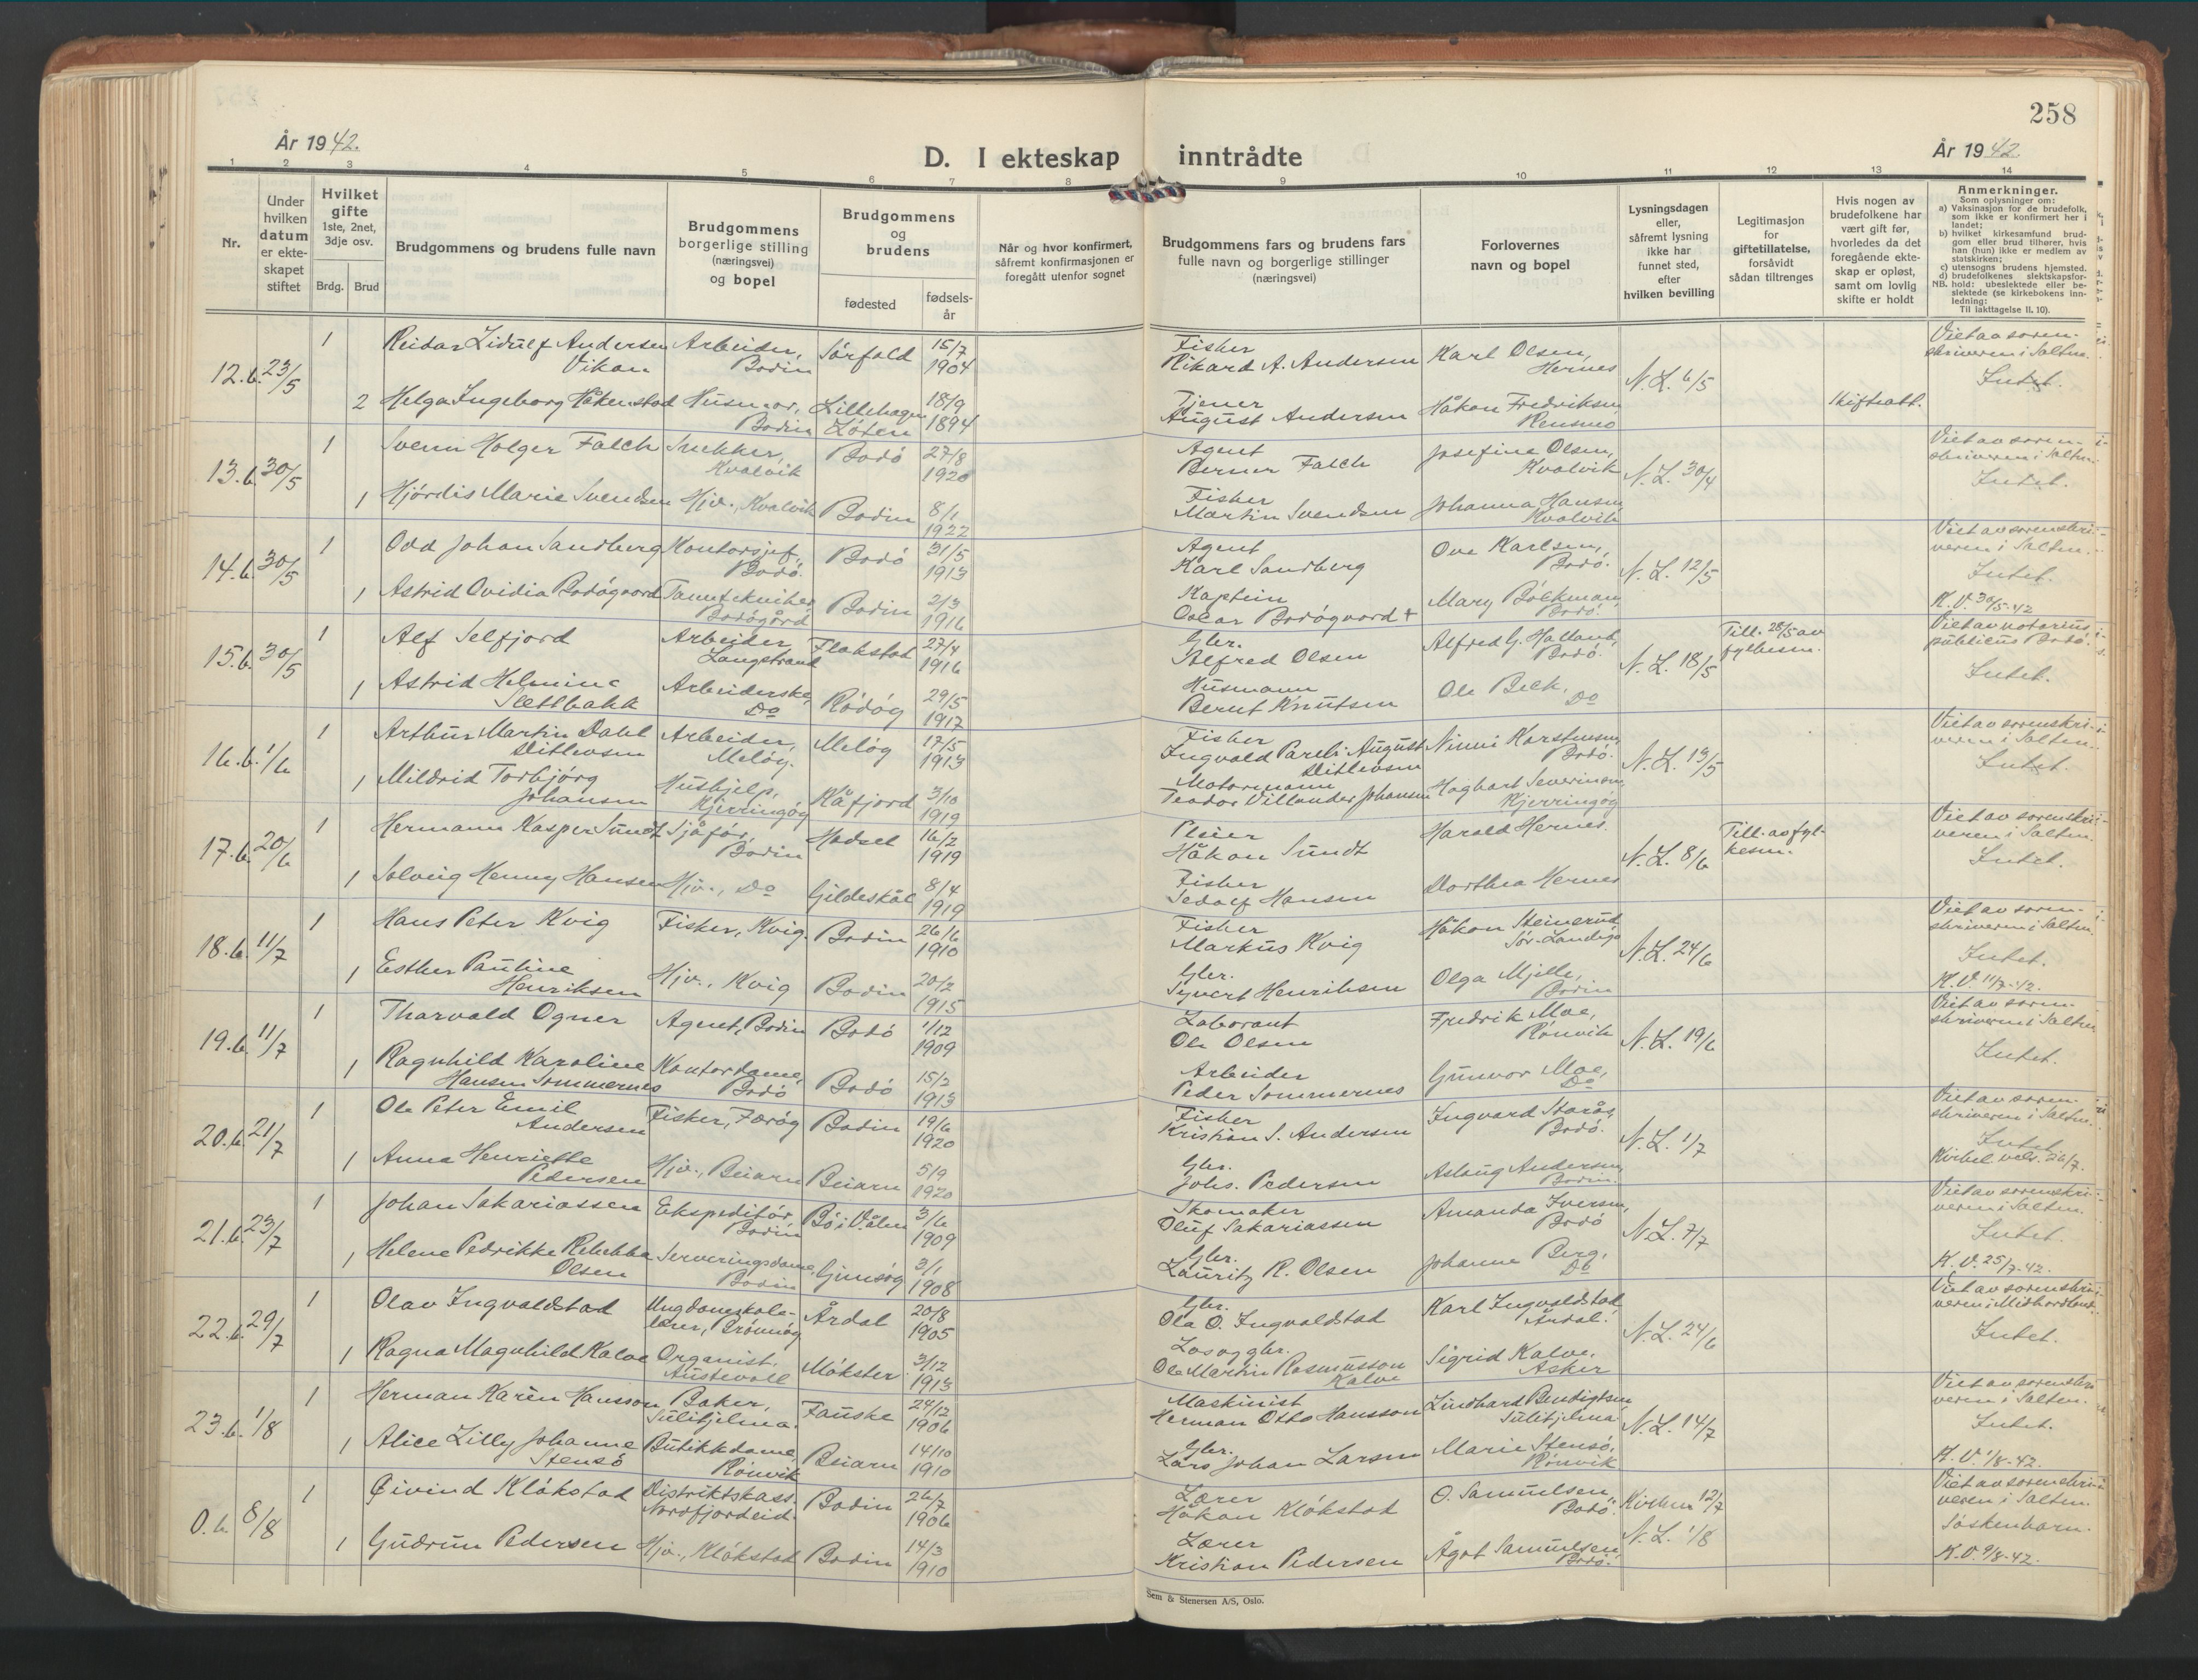 258
År 1942.
D. I ekteskap inntrådte
År 1942
1 2 3 4 5 6 7 8 9 10 11 12 13 14
Nr.
Under
hvilken
datum
er ekte-
skapet
stiftet
Hvilket
gifte
1ste, 2net,
3dje osv.
Brdg.
Brud
Brudgommens og brudens fulle navn
Brudgommens
borgerlige stilling
(næringsvei)
og bopel
Brudgommens
og
brudens
fødested
fødsels-
år
Når og hvor konfirmert,
såfremt konfirmasjonen er
foregått utenfor sognet
Brudgommens fars og brudens fars
fulle navn og borgerlige stillinger
(næringsvei)
Forlovernes
navn og bopel
Lysningsdagen
eller,
såfremt lysning
ikke har
funnet sted,
efter
hvilken bevilling
Legitimasjon
for
giftetillatelse,
forsåvidt
sådan tiltrenges
Hvis nogen av
brudefolkene har
vært gift før,
hvorledes da det
foregående ekte-
skap er opløst,
samt om lovlig
skifte er holdt
Anmerkninger.
Som oplysninger om:
a) Vaksinasjon for de brudefolk,
som ikke er konfirmert her i
landet;
b) hvilket kirkesamfund brud-
gom eller brud tilhører, hvis
han (hun) ikke er medlem av
statskirken;
c) utensogns brudens hjemsted.
d) brudefolkenes slektskapsfor-
NB. hold: ubeslektede eller be-
slektede (se kirkebokens inn-
ledning:
Til iakttagelse II. 10).
12.b. 23/5
1 Reidar Lidulf Andersen Arbeider, Sørfold 15/7
Vikan Bodin 1904
Fisker Karl Olsen,
Rikard A. Andersen Hernes
N. L. 6/5
Viet av soren-
skriveren i Salten.
Intet.
2 Helga Ingeborg Håkenstad Husmor, Lillehagen 18/9
Bodin Løten 1894
Tjener Håkon Fredriksen,
August Andersen Rensmo
Skifteatt.
13.b. 30/5
1 Svenn Holger Falch Snekker, Bodø 27/8
Kvalvik 1920
Agent Josefine Olsen,
Berner Falch Kvalvik
N. L. 30/4
Viet av soren-
skriveren i Salten.
Intet.
1 Hjørdis Marie Svendsen Hjv., Kvalvik Bodin 8/1
1922
Fisker Johanna Hansen,
Martin Svendsen Kvalvik
14.b. 30/5
1 Odd Johan Sandberg Kontorsjef, Bodø 31/5
Bodø. 1913
Agent Ove Karlsen,
Karl Sandberg Bodø.
N. L. 12/5
Viet av sorenskri-
veren i Salten.
Intet.
1 Astrid Ovidia Bodøgaard Bodin 2/3
Bodøgård 1916
Kaptein Mary Bøckman,
Oscar Bodøgaard + Bodø.
K. V. 30/5-42
15.b. 30/5
1 Alf Selfjord Arbeider Flakstad 27/4
Langstrand 1916
Gbr. Alfred G. Halland,
Alfred Olsen Bodø.
N. L. 18/5
Till. 28/5 av
fylkesm.
Viet av notarius
publicus Bodø.
Intet.
1 Astrid Helmine Arbeiderske, Rødøy 29/5
Slettbakk Do 1917
Husmann Ole Beck,
Bernt Knutsen Do
16.b. 1/6
1 Arthur Martin Dahl Arbeider, Meløy 17/5
Ditlevsen Meløy. 1913
Fisker Ninni Karstensen,
Ingvald Pareli August Bodø.
Ditlevsen
N. L. 13/5
Viet av sorenskri-
veren i Salten.
Intet.
1 Mildrid Torbjørg Hushjelp, Kåfjord 3/10
Johansen Kjerringøy 1919
Motormann Hagbart Severinsen,
Teodor Villander Johansen Kjerringøy
17.b. 20/6
1 Hermann Kasper Sundt Sjåfør, Hadsel 16/2
Bodin 1919
Pleier Harald Hernes.
Håkon Sundt
N. L. 8/6
Till. av fyl-
kesm.
Viet av sorenskri-
veren i Salten.
Intet.
1 Solveig Henny Hansen Hjv., Do Gildeskål 8/4
1919
Fisker Dorthea Hernes
Sedolf Hansen
18.b. 11/7
1 Hans Peter Kvig Fisker, Kvig. Bodin 26/6
1910
Fisker Håkon Steinerud,
Markus Kvig Sør-Landego
N. L. 24/6
Viet av soren-
skriveren i Salten.
Intet.
1 Esther Pauline Hjv., Kvig Bodin 20/2
Henriksen 1915
Gbr. Olga Mjelle,
Syvert Henriksen Bodin
K. V. 11/7-42.
19.b. 11/7
1 Tharvald Ogner Agent, Bodin Bodø 1/12
1909
Laborant Fredrik Moe,
Ole Olsen Rønvik
N. L. 19/6
Viet av soren-
skriveren i Salten
Intet.
1 Ragnhild Karoline Kontordame, Bodø 15/2
Hansen Sommernes Bodø 1913
Arbeider Gunvor Moe,
Peder Sommernes Do
20.b. 21/7
1 Ole Peter Emil Fisker, Færøy Bodin 19/6
Andersen 1920
Fisker Ingvard Storås,
Kristian S. Andersen Bodø.
N. L. 1/7
Viet av soren-
skriveren i Salten.
Intet.
1 Anna Henriette Hjv., Beiarn Beiarn 5/9
Pedersen 1920
Gbr. Aslaug Andersen,
Johs. Pedersen Bodin.
Kirkel. vels. 26/7.
21.b. 23/7
1 Johan Sakariassen Ekspeditør, Bø i Vålen 3/6
Bodin 1909
Skomaker Amanda Iversen,
Oluf Sakariassen Bodø
N. L. 7/7
Viet av sorenskri-
veren i Salten.
Intet.
1 Helene Pedrikke Rebekka Serveringsdame, Gimsøy 3/1
Olsen Bodin 1908
Gbr. Johanne Berg,
Lauritz R. Olsen Do
K. V. 25/7-42.
22.b. 29/7
1 Olav Ingvaldstad Ungdomsskole- Årdal 20/8
lærer, Brønnøy 1905
Gbr. Karl Ingvaldstad,
Ola O. Ingvaldstad Årdal.
N. L. 24/6
Viet av sorenskri-
veren i Midhordland.
Intet.
1 Ragna Magnhild Kalve Organist, Møkster 3/12
Austevoll 1913
Los og gbr. Sigrid Kalve,
Ole Martin Rasmusson Asker
Kalve
23.b. 1/8
1 Herman Karèn Hansson Baker, Fauske 24/12
Sulitjelma. 1906
Maskinist Lindhard Bendigtsen,
Herman Otto Hansson Sulitjelma
N. L. 14/7
Viet av sorenskri-
veren i Salten.
Intet.
1 Alice Lilly Johanne Butikkdame, Beiarn 14/10
Stensø Rønvik 1910
Gbr. Marie Stensø,
Lars Johan Larsen Rønvik
K. V. 1/8-42.
0.b. 8/8
1 Øivind Kløkstad Distriktskass. Bodin 26/7
Nordfjordeid. 1906
Lærer O. Samuelsen,
Håkon Kløkstad Bodø.
Kirken 12/7
N. L. 1/8
Viet av sorenskri-
veren i Salten.
Søskenbarn.
1 Gudrun Pedersen Hjv., Kløkstad Bodin 14/3
1910
Lærer Ågot Samuelsen,
Kristian Pedersen Bodø.
K. V. 9/8-42.
Sem & Stenersen A/S, Oslo.